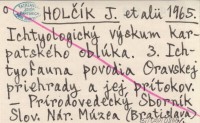 HOLČÍK J. et alii 1965.
Ichtyologický výskum kar-
patského oblúka. 3. Ich-
tyofauna povodia Oravskej
priehrady a jej prítokov.
— Prírodovedecký Sborník
Slov. Nár. Múzea (Bratislava)